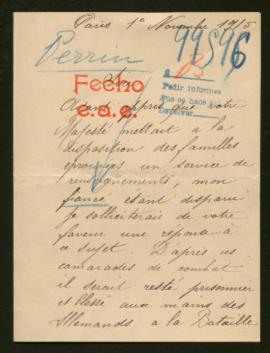 Paris 1º Novembre 1915
99896
Perrin
Fecho
e.a.e.
Sire
a B
Pedir informes
que se hace
devolver
Ayant appris que votre
Majesté mettait à la
disposition des familles
éprouvées un service de
renseignements, mon
fiancé étant disparu
je solliciterais de votre
faveur une réponse à
ce sujet. D'après ses
camarades de combat
il serait resté prisonnier
et blessé aux mains des
Allemands a la Bataille